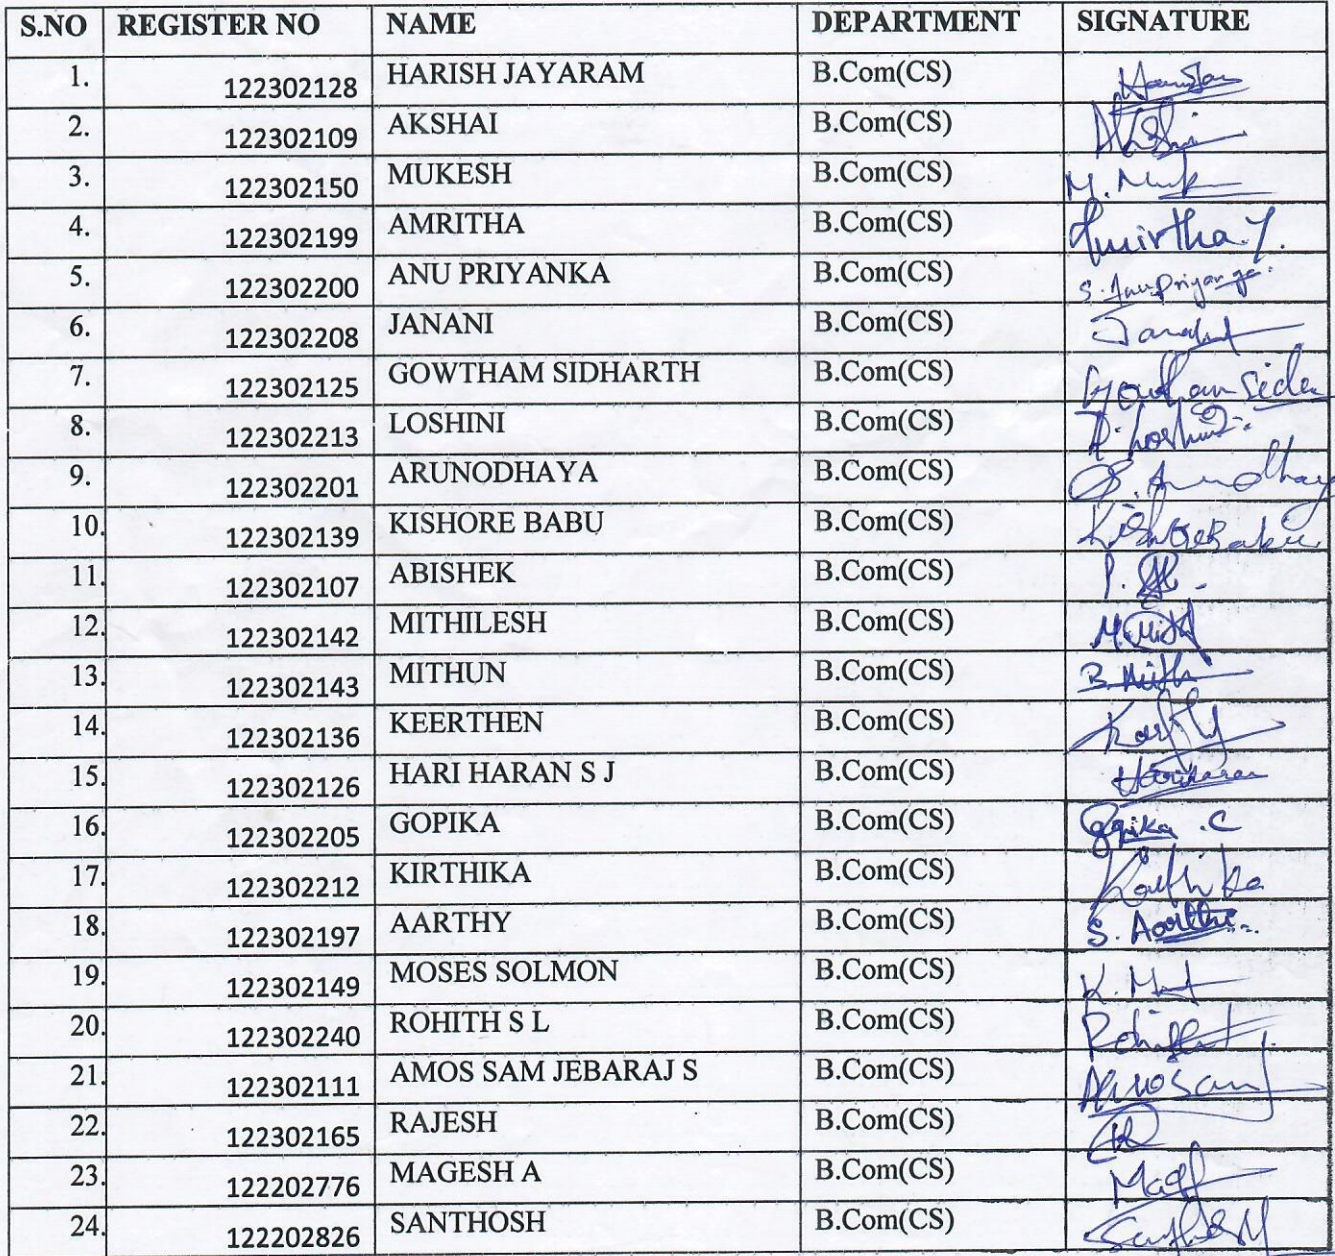 S.NO REGISTER NO NAME DEPARTMENT SIGNATURE
1. 122302128 HARISH JAYARAM B.Com(CS)
2. 122302109 AKSHAI B.Com(CS)
3. 122302150 MUKESH B.Com(CS)
4. 122302199 AMRITHA B.Com(CS) Amirtha.Y.
5. 122302200 ANU PRIYANKA B.Com(CS) S. Anupriyanga.
6. 122302208 JANANI B.Com(CS)
7. 122302125 GOWTHAM SIDHARTH B.Com(CS)
8. 122302213 LOSHINI B.Com(CS)
9. 122302201 ARUNODHAYA B.Com(CS)
10. 122302139 KISHORE BABU B.Com(CS)
11. 122302107 ABISHEK B.Com(CS)
12. 122302142 MITHILESH B.Com(CS)
13. 122302143 MITHUN B.Com(CS)
14. 122302136 KEERTHEN B.Com(CS)
15. 122302126 HARI HARAN S J B.Com(CS) Hariharan
16. 122302205 GOPIKA B.Com(CS) Gopika .C
17. 122302212 KIRTHIKA B.Com(CS)
18. 122302197 AARTHY B.Com(CS) S. Aarthi
19. 122302149 MOSES SOLMON B.Com(CS)
20. 122302240 ROHITH S L B.Com(CS)
21. 122302111 AMOS SAM JEBARAJ S B.Com(CS) Amosam
22. 122302165 RAJESH B.Com(CS)
23. 122202776 MAGESH A B.Com(CS)
24. 122202826 SANTHOSH B.Com(CS)